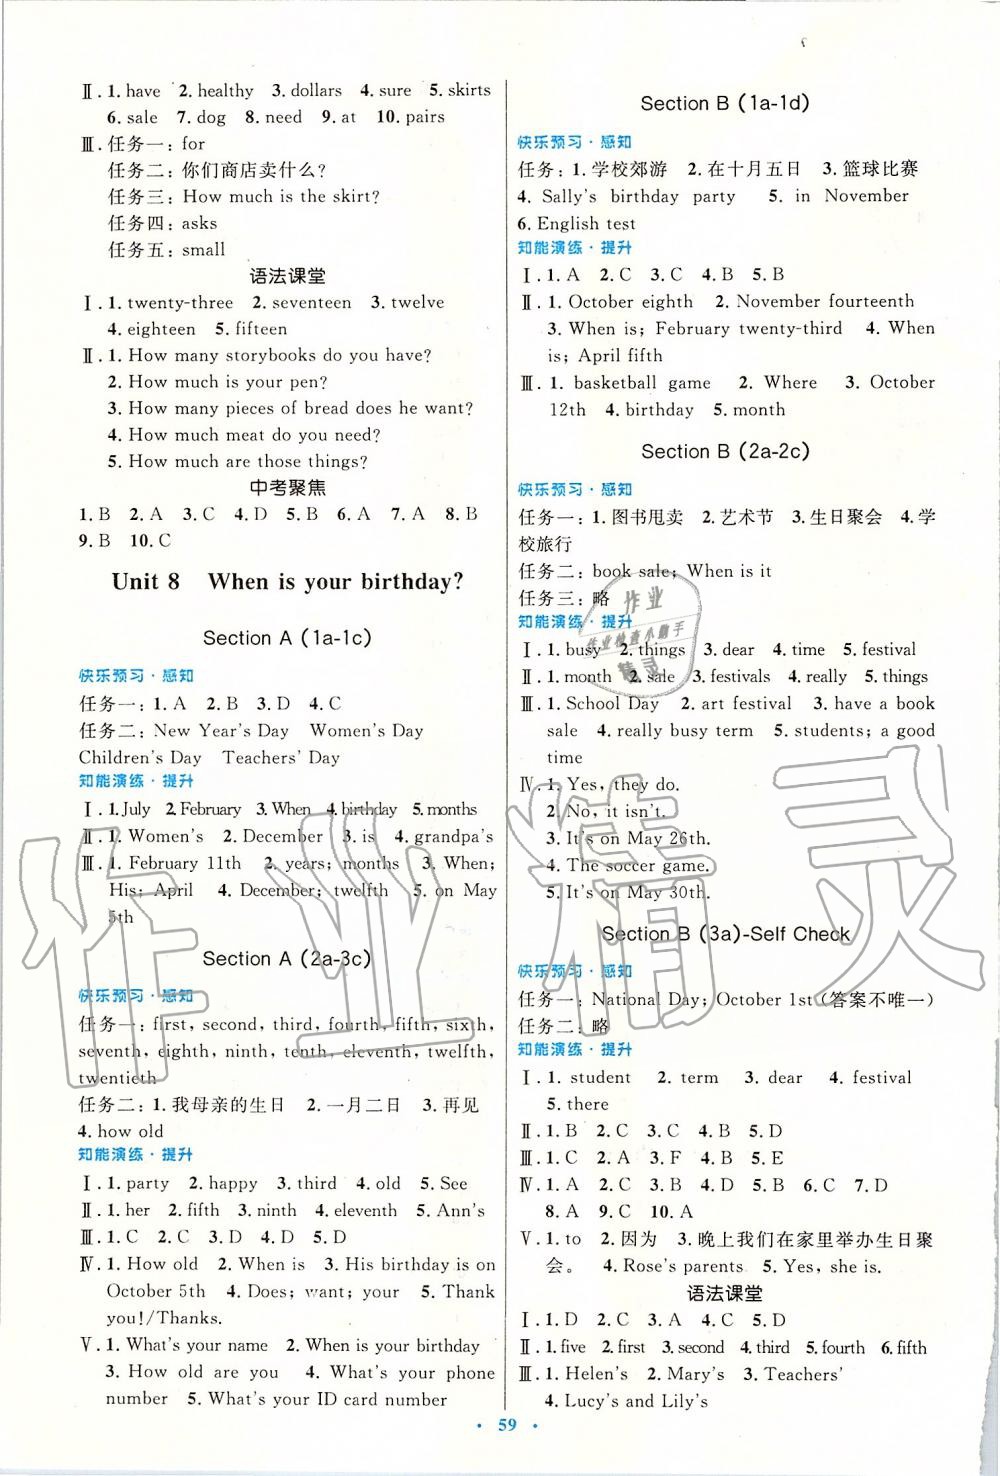 Ⅱ. 1. have 2. healthy 3. dollars 4. sure 5. skirts
6. sale 7. dog 8. need 9. at 10. pairs
Ⅲ. 任务一: for
任务二: 你们商店卖什么?
任务三: How much is the skirt?
任务四: asks
任务五: small
语法课堂
Ⅰ. 1. twenty-three 2. seventeen 3. twelve
4. eighteen 5. fifteen
Ⅱ. 1. How many storybooks do you have?
2. How much is your pen?
3. How many pieces of bread does he want?
4. How much meat do you need?
5. How much are those things?
中考聚焦
1. B 2. A 3. C 4. D 5. B 6. A 7. A 8. B
9. B 10. C
Unit 8 When is your birthday?
Section A (1a-1c)
快乐预习·感知
任务一: 1. A 2. B 3. D 4. C
任务二: New Year's Day Women's Day
Children's Day Teachers' Day
知能演练·提升
Ⅰ. 1. July 2. February 3. When 4. birthday 5. months
Ⅱ. 1. Women's 2. December 3. is 4. grandpa's
Ⅲ. 1. February 11th 2. years; months 3. When;
His; April 4. December; twelfth 5. on May
5th
Section A (2a-3c)
快乐预习·感知
任务一: first, second, third, fourth, fifth, sixth,
seventh, eighth, ninth, tenth, eleventh, twelfth,
twentieth
任务二: 1. 我母亲的生日 2. 一月二日 3. 再见
4. how old
知能演练·提升
Ⅰ. 1. party 2. happy 3. third 4. old 5. See
Ⅱ. 1. her 2. fifth 3. ninth 4. eleventh 5. Ann's
Ⅲ. 1. C 2. C 3. D 4. D 5. D
Ⅳ. 1. How old 2. When is 3. His birthday is on
October 5th 4. Does; want; your 5. Thank
you!/Thanks.
Ⅴ. 1. What's your name 2. When is your birthday
3. How old are you 4. What's your phone
number 5. What's your ID card number
Section B (1a-1d)
快乐预习·感知
任务: 1. 学校郊游 2. 在十月五日 3. 篮球比赛
4. Sally's birthday party 5. in November
6. English test
知能演练·提升
Ⅰ. 1. A 2. C 3. C 4. B 5. B
Ⅱ. 1. October eighth 2. November fourteenth
3. When is; February twenty-third 4. When
is; April fifth
Ⅲ. 1. basketball game 2. Where 3. October
12th 4. birthday 5. month
Section B (2a-2c)
快乐预习·感知
任务一: 1. 图书甩卖 2. 艺术节 3. 生日聚会 4. 学
校旅行
任务二: book sale; When is it
任务三: 略
知能演练·提升
Ⅰ. 1. busy 2. things 3. dear 4. time 5. festival
Ⅱ. 1. month 2. sale 3. festivals 4. really 5. things
Ⅲ. 1. School Day 2. art festival 3. have a book
sale 4. really busy term 5. students; a good
time
Ⅳ. 1. Yes, they do.
2. No, it isn't.
3. It's on May 26th.
4. The soccer game.
5. It's on May 30th.
Section B (3a)-Self Check
快乐预习·感知
任务一: National Day; October 1st(答案不唯一)
任务二: 略
知能演练·提升
Ⅰ. 1. student 2. term 3. dear 4. festival
5. there
Ⅱ. 1. B 2. C 3. C 4. B 5. D
Ⅲ. 1. C 2. A 3. F 4. B 5. E
Ⅳ. 1. A 2. C 3. B 4. D 5. B 6. C 7. D
8. A 9. C 10. A
Ⅴ. 1. to 2. 因为 3. 晚上我们在家里举办生日聚
会。 4. Rose's parents 5. Yes, she is.
语法课堂
Ⅰ. 1. D 2. C 3. A 4. C 5. D
Ⅱ. 1. five 2. first 3. second 4. third 5. fourth 6. fifth
Ⅲ. 1. Helen's 2. Mary's 3. Teachers'
4. Lucy's and Lily's
· 59 ·
作业
作业检查小助手
精灵
作业精灵